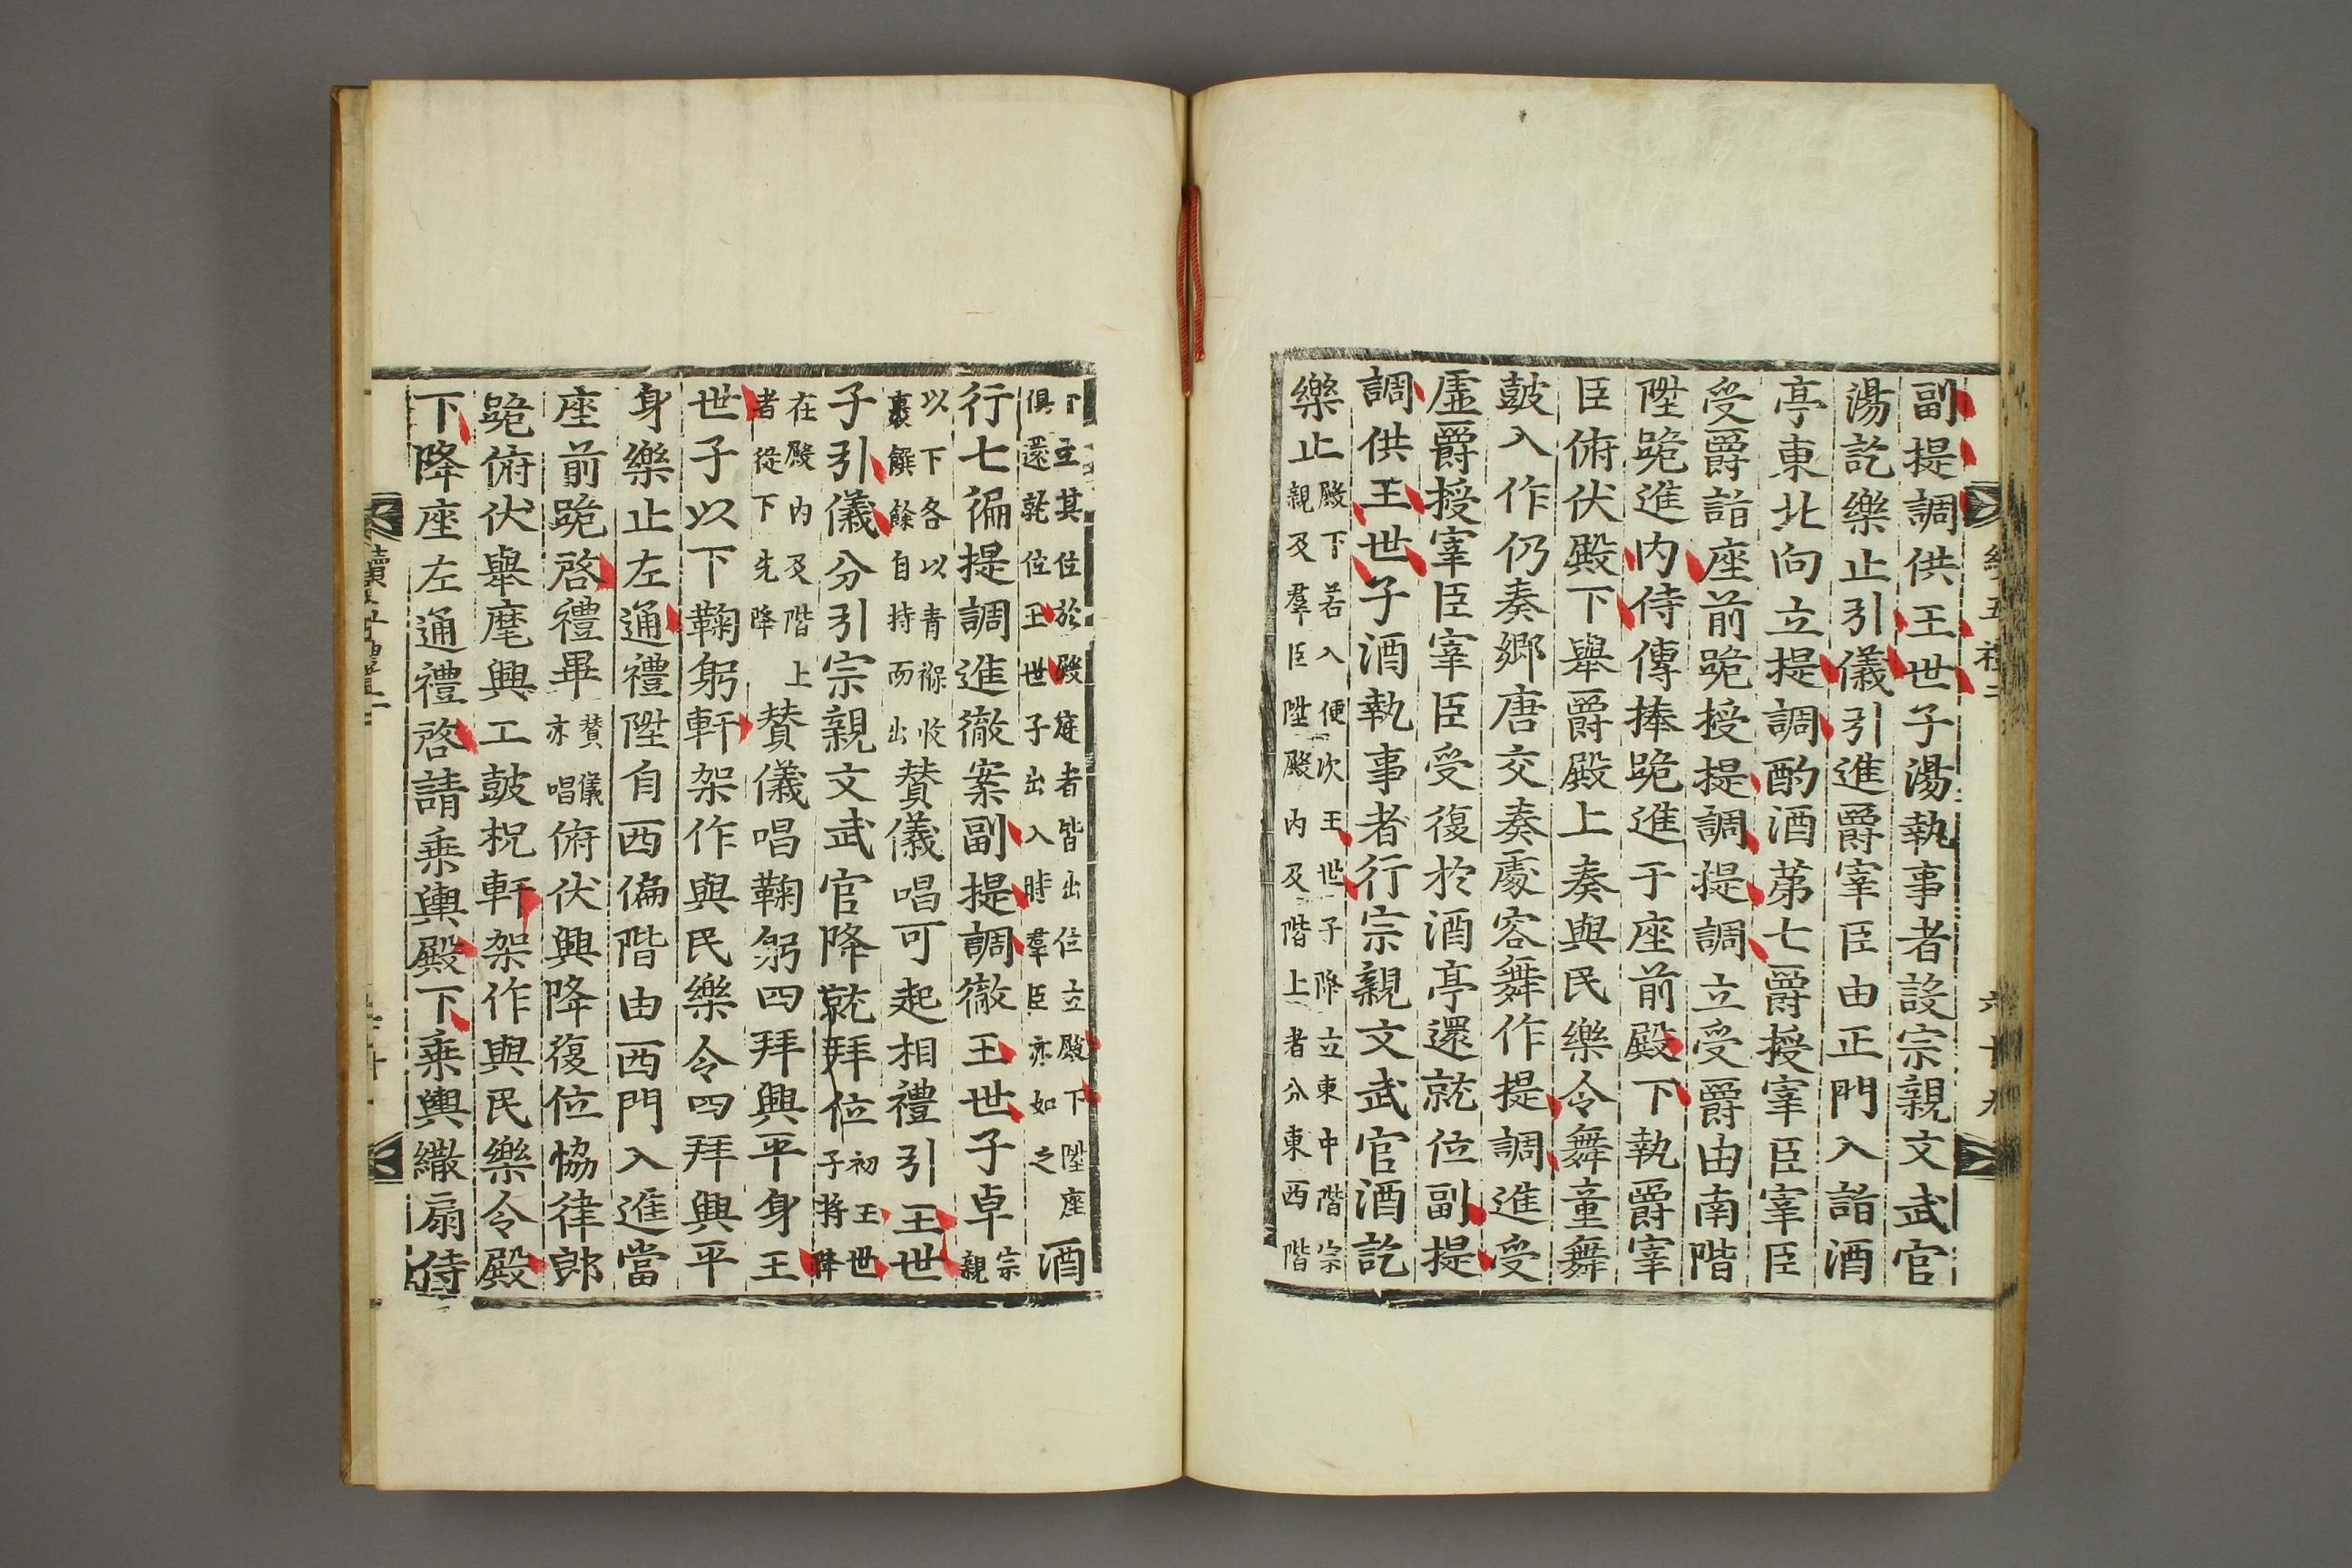 副提調供王世子湯執事者設宗親文武官
湯訖樂止引儀引進爵宰臣由正門入詣酒
亭東北向立提調酌酒第七爵授宰臣宰臣
受爵詣座前跪授提調提調立受爵由南階
陞跪進內侍傳捧跪進于座前殿下執爵宰
臣俯伏殿下舉爵殿上奏與民樂令舞童舞
鼓入作仍奏鄉唐交奏處容舞作提調進受
虛爵授宰臣宰臣受復於酒亭還就位副提
調供王世子酒執事者行宗親文武官酒訖
樂止殿下若入便次王世子降立東中階宗
親及羣臣陞殿內及階上者分東西階
下立其位於殿庭者皆出位立殿下陞座
俱還就位王世子出入時羣臣亦如之酒
行七徧提調進徹案副提調徹王世子卓宗
親
以下各以靑褓收
裹饌餘自持而出贊儀唱可起相禮引王世
子引儀分引宗親文武官降就拜位初王世
子將降
在殿內及階上
者從下先降贊儀唱鞠躬四拜興平身王
世子以下鞠躬軒架作與民樂令四拜興平
身樂止左通禮陞自西偏階由西門入進當
座前跪啓禮畢贊儀
亦唱俯伏興降復位協律郎
跪俯伏舉麾興工鼓柷軒架作與民樂令殿
下降座左通禮啓請乘輿殿下乘輿繖扇侍